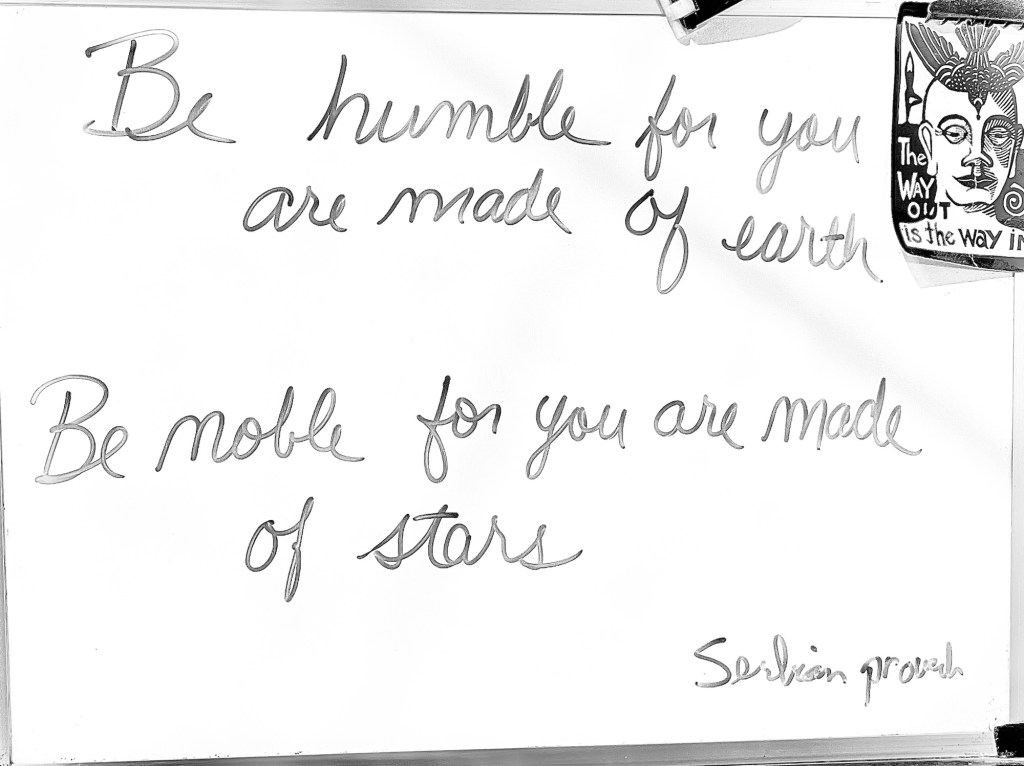 Be humble for you
are made of earth
Be noble for you are made
of stars
Serbian proverb
The
WAY
OUT
is the WAY IN